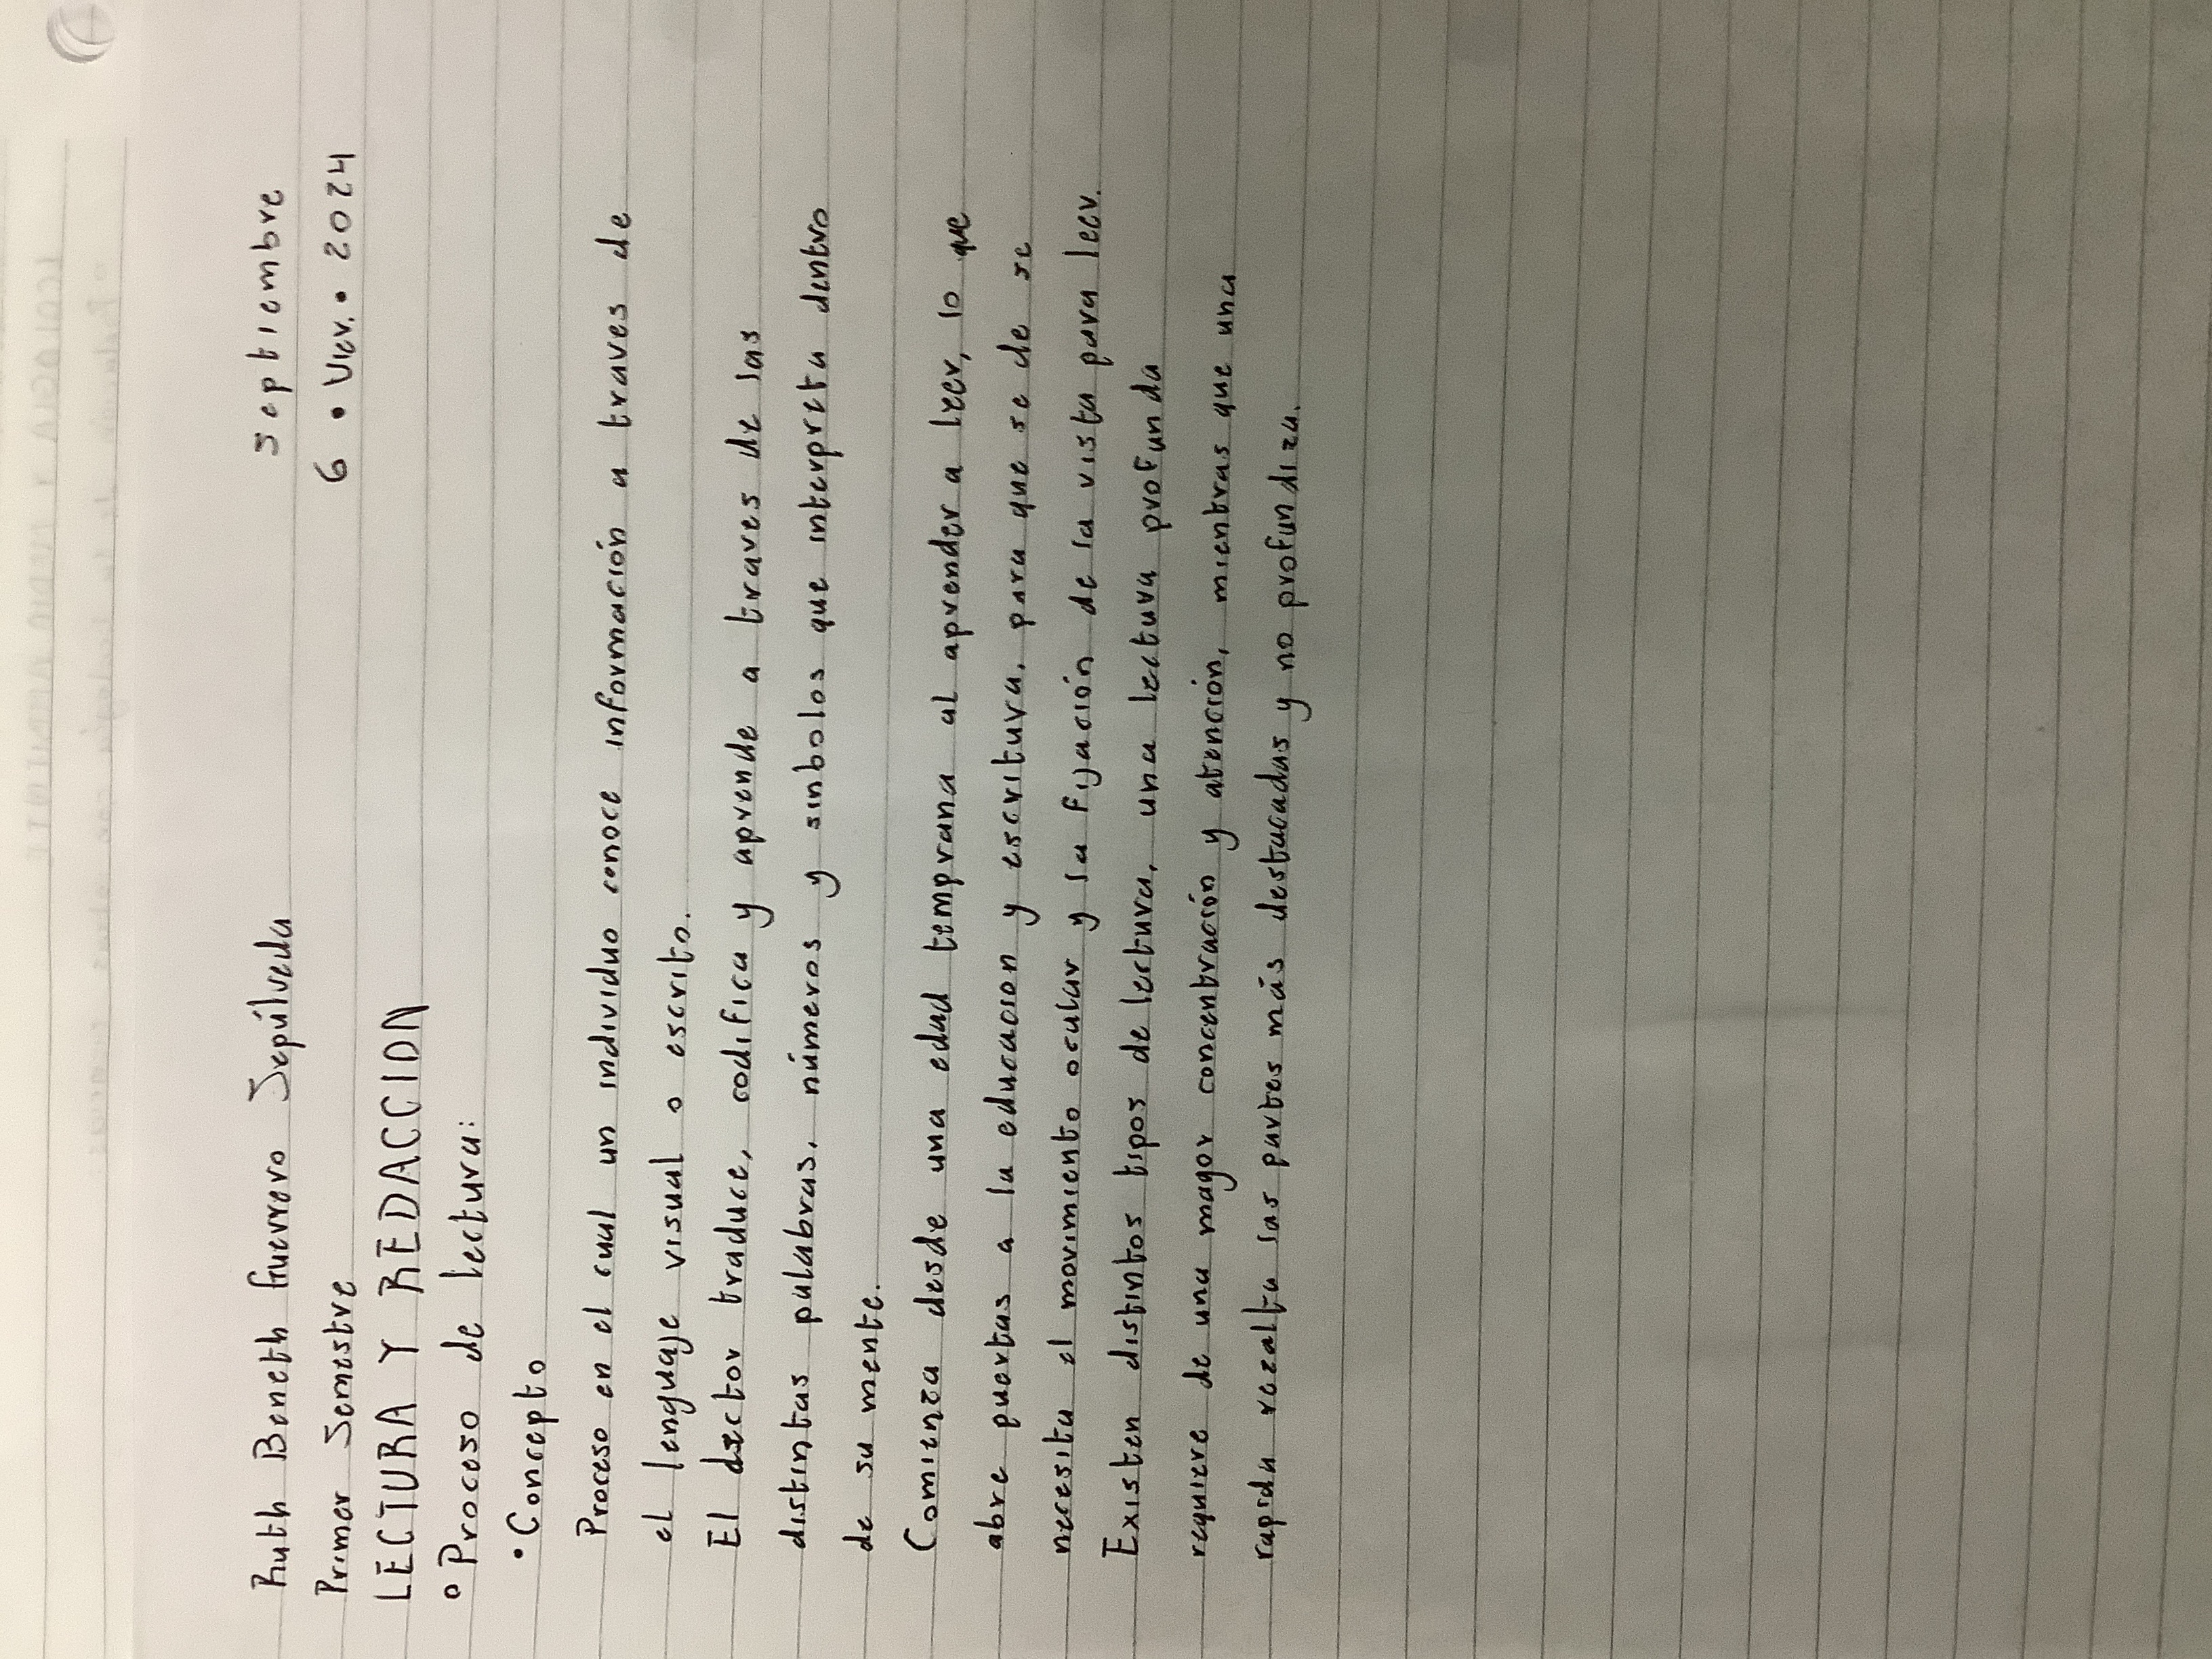 Ruth Beneth Guerrero Sepúlveda septiembre
Primer Semestre 6 • Vier. • 2024
LECTURA Y REDACCION
o Proceso de lectura:
• Concepto
Proceso en el cual un individuo conoce información a traves de
el lenguaje visual o escrito.
El lector traduce, codifica y aprende a traves de las
distintas palabras, números y sinbolos que interpreta dentro
de su mente.
Comienza desde una edad temprana al aprender a leer, lo que
abre puertas a la educacion y escritura, para que se de se
necesita el movimiento ocular y la fijación de la vista para leer.
Existen distintos tipos de lectura, una lectura profunda
requiere de una magor concentración y atención, mientras que una
rapida rezalta las partes más destacadas y no profundiza.